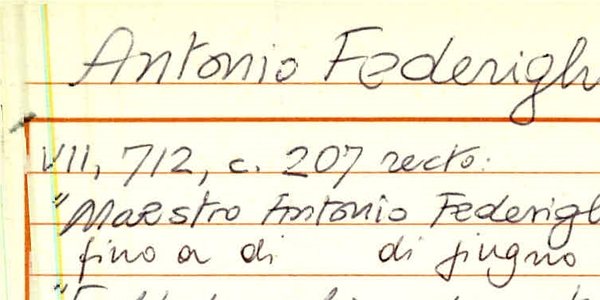 Antonio Federigh
VII, 712, c. 207 recto:
"Maestro Antonio Federigh
fino a di di giugno